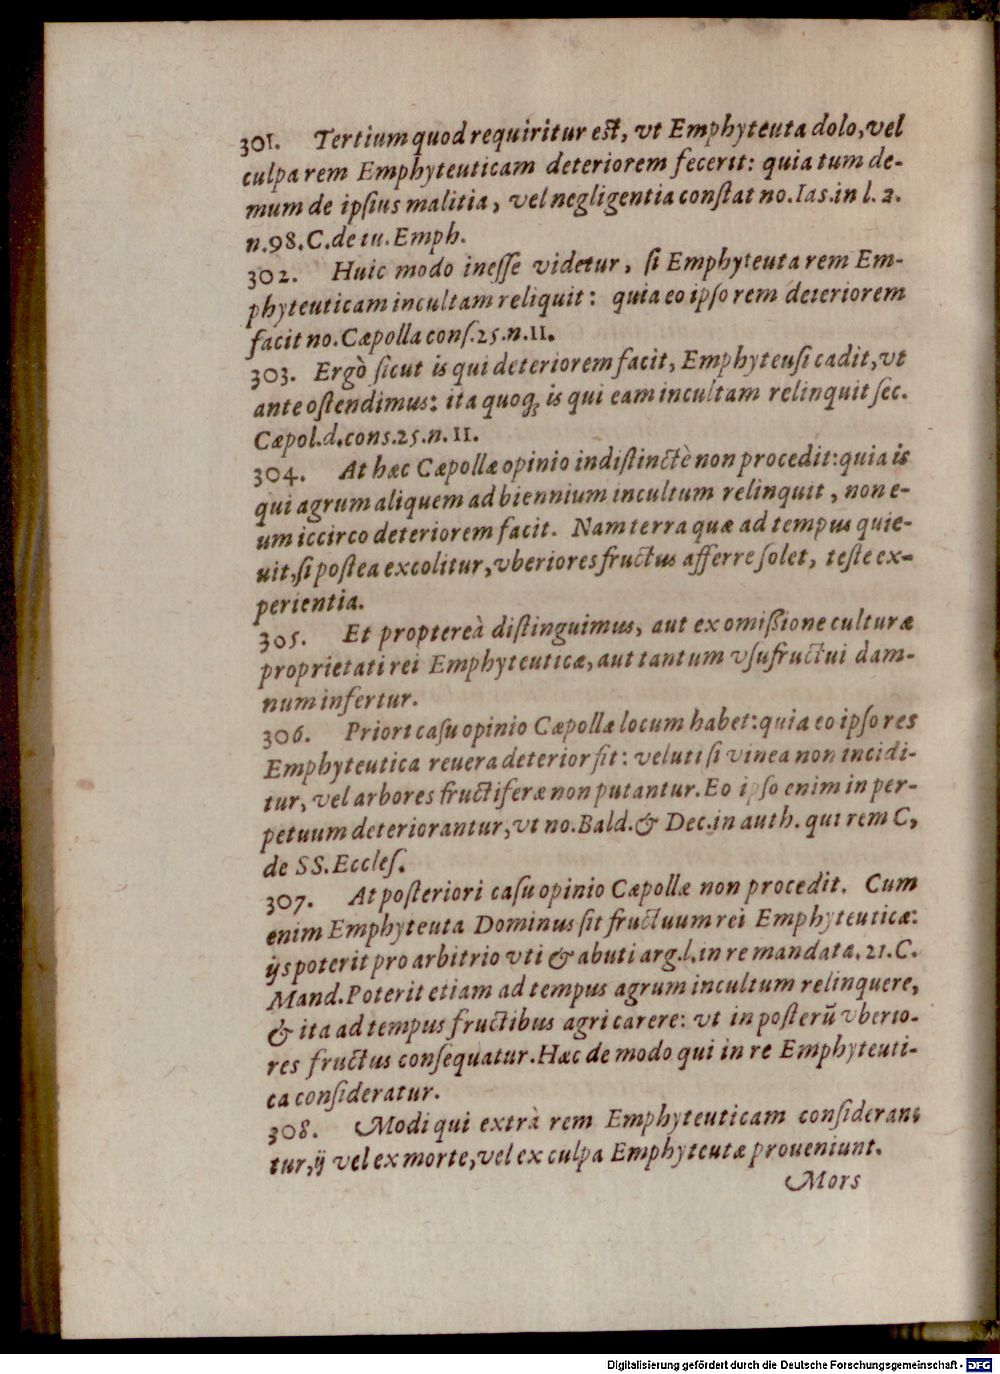 301. Tertium quod requiritur est, vt Emphyteuta dolo, vel
culpa rem Emphyteuticam deteriorem fecerit: quia tum de-
mum de ipsius malitia, vel negligentia constat no. Ias. in l. 2.
n. 98. C. de iu. Emph.
302. Huic modo inesse videtur, si Emphyteuta rem Em-
phyteuticam incultam reliquit: quia eo ipso rem deteriorem
facit no. Cæpolla cons. 25. n. 11.
303. Ergò sicut is qui deteriorem facit, Emphyteusi cadit, vt
ante ostendimus: ita quoq; is qui eam incultam relinquit sec.
Cæpol. d. cons. 25. n. 11.
304. At hæc Cæpollæ opinio indistinctè non procedit: quia is
qui agrum aliquem ad biennium incultum relinquit, non e-
um iccirco deteriorem facit. Nam terra quæ ad tempus quie-
uit, si postea excolitur, vberiores fructus afferre solet, teste ex-
perientia.
305. Et proptereà distinguimus, aut ex omißione culturæ
proprietati rei Emphyteuticæ, aut tantum vsufructui dam-
num infertur.
306. Priori casu opinio Cæpollæ locum habet: quia eo ipso res
Emphyteutica reuera deterior fit: veluti si vinea non incidi-
tur, vel arbores fructiferæ non putantur. Eo ipso enim in per-
petuum deteriorantur, vt no. Bald. & Dec. in auth. qui rem C,
de SS. Eccles.
307. At posteriori casu opinio Cæpollæ non procedit. Cum
enim Emphyteuta Dominus sit fructuum rei Emphyteuticæ:
ijs poterit pro arbitrio vti & abuti arg. l. in re mandata. 21. C.
Mand. Poterit etiam ad tempus agrum incultum relinquere,
& ita ad tempus fructibus agri carere: vt in posterũ vberio-
res fructus consequatur. Hæc de modo qui in re Emphyteuti-
ca consideratur.
308. Modi qui extrà rem Emphyteuticam consideran-
tur, ij vel ex morte, vel ex culpa Emphyteutæ proueniunt.
Mors
Digitalisierung gefördert durch die Deutsche Forschungsgemeinschaft - DFG